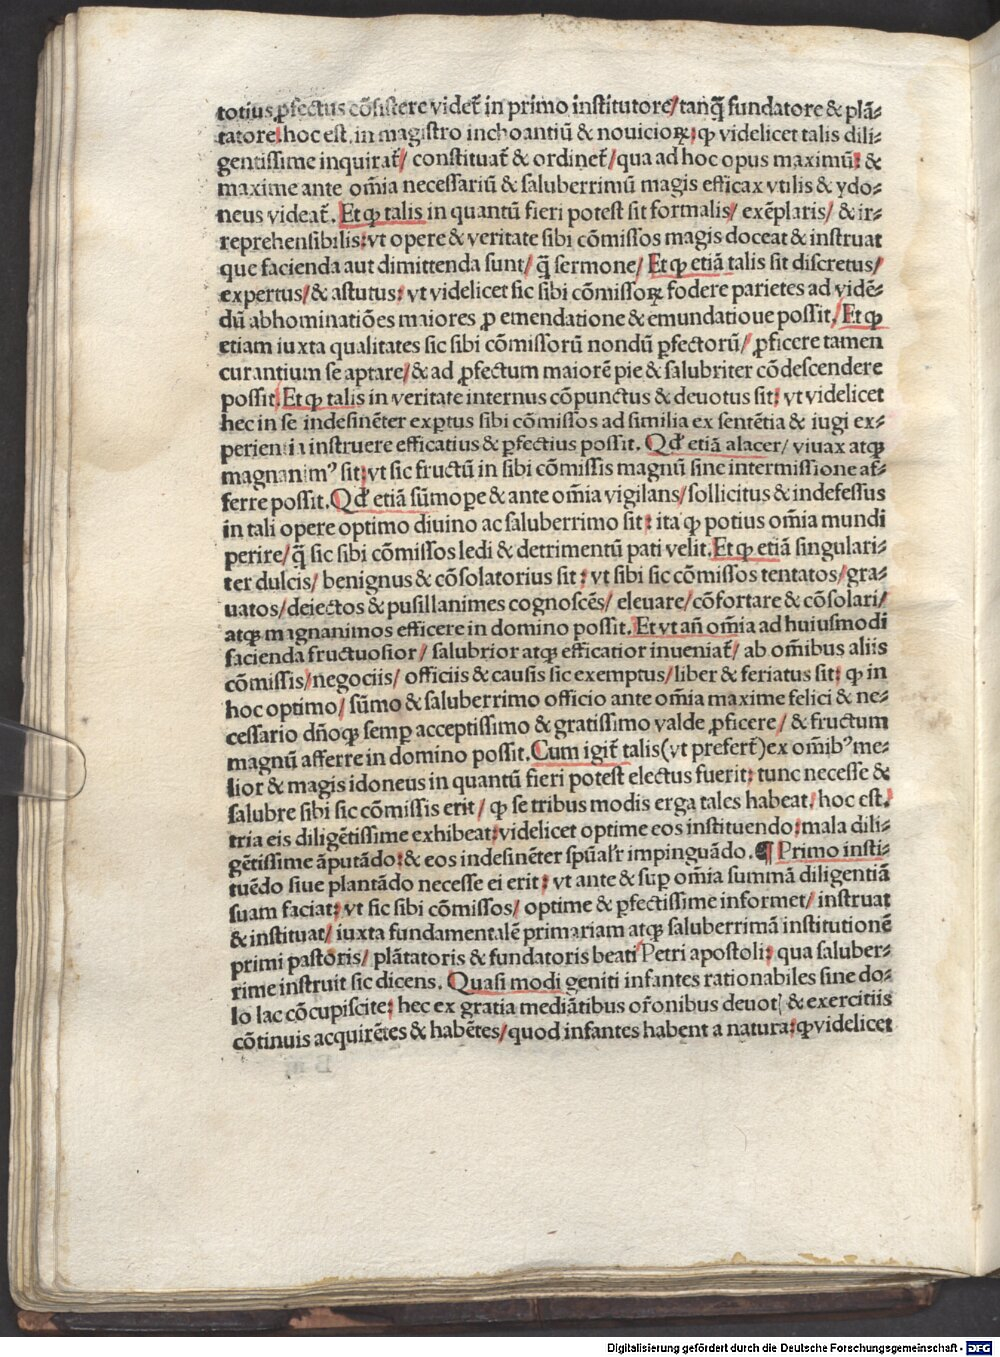 totius ꝓfectus cõsistere videt̃ in primo institutore/tanq̃ fundatore & plã⸗
tatore:hoc est in magistro inchoantiũ & nouicioꝝ:ꝙ videlicet talis dili⸗
gentissime inquirat̃/ constituat̃ & ordinet̃/qua ad hoc opus maximũ: &
maxime ante om̃ia necessariũ & saluberrimũ magis efficax vtilis & ydo⸗
neus videat̃. Et ꝙ talis in quantũ fieri potest sit formalis/ exẽplaris/ & ir⸗
reprehensibilis:vt opere & veritate sibi cõmissos magis doceat & instruat
que facienda aut dimittenda sunt/ q̃ sermone/ Et ꝙ etiã talis sit discretus/
expertus/& astutus: vt videlicet sic sibi cõmissoꝝ fodere parietes ad vidẽ⸗
dũ abhominatiões maiores ꝓ emendatione & emundatioue possit. Et ꝙ
etiam iuxta qualitates sic sibi cõmissorũ nondũ ꝑfectorũ/ ꝓficere tamen
curantium se aptare/& ad ꝓfectum maiorẽ pie & salubriter cõdescendere
possit. Et ꝙ talis in veritate internus cõpunctus & deuotus sit: vt videlicet
hec in se indesinẽter exꝑtus sibi cõmissos ad similia ex sentẽtia & iugi ex⸗
perientia instruere efficatius & ꝑfectius possit. Qđ etiã alacer/ viuax atqꝫ
magnanimꝰ sit:vt sic fructũ in sibi cõmissis magnũ sine intermissione af⸗
ferre possit. Qđ etiã sũmoꝑe & ante om̃ia vigilans/sollicitus & indefessus
in tali opere optimo diuino ac saluberrimo sit: ita ꝙ potius om̃ia mundi
perire/q̃ sic sibi cõmissos ledi & detrimentũ pati velit. Et ꝙ etiã singulari⸗
ter dulcis/ benignus & cõsolatorius sit: vt sibi sic cõmissos tentatos/gra⸗
uatos/deiectos & pusillanimes cognoscẽs/ eleuare/cõfortare & cõsolari/
atqꝫ magnanimos efficere in domino possit. Et vt añ om̃ia ad huiusmodi
facienda fructuosior/ salubrior atqꝫ efficatior inueniat̃/ ab om̃ibus aliis
cõmissis/negociis/ officiis & causis sic exemptus/liber & feriatus sit: ꝙ in
hoc optimo/ sũmo & saluberrimo officio ante om̃ia maxime felici & ne⸗
cessario dñoqꝫ semꝑ acceptissimo & gratissimo valde ꝓficere/ & fructum
magnũ afferre in domino possit. Cum igit̃ talis(vt prefert̃)ex om̃ibꝰ me⸗
lior & magis idoneus in quantũ fieri potest electus fuerit: tunc necesse &
salubre sibi sic cõmissis erit/ ꝙ se tribus modis erga tales habeat: hoc est.
tria eis diligẽtissime exhibeat:videlicet optime eos instituendo:mala dili⸗
gẽtissime ãputãdo:& eos indesinẽter spũal'r impinguãdo. ¶ Primo insti⸗
tuẽdo siue plantãdo necesse ei erit: vt ante & suꝑ om̃ia summã diligentiã
suam faciat: vt sic sibi cõmissos/ optime & ꝑfectissime informet/ instruat
& instituat/ iuxta fundamentalẽ primariam atqꝫ saluberrimã institutionẽ
primi pastoris/ plãtatoris & fundatoris beati Petri apostoli: qua saluber⸗
rime instruit sic dicens. Quasi modi geniti infantes rationabiles sine do⸗
lo lac cõcupiscite: hec ex gratia mediãtibus or̃onibus deuot & exercitiis
cõtinuis acquirẽtes & habẽtes/quod infantes habent a natura:ꝙ videlicet
Digitalisierung gefördert durch die Deutsche Forschungsgemeinschaft - DFG